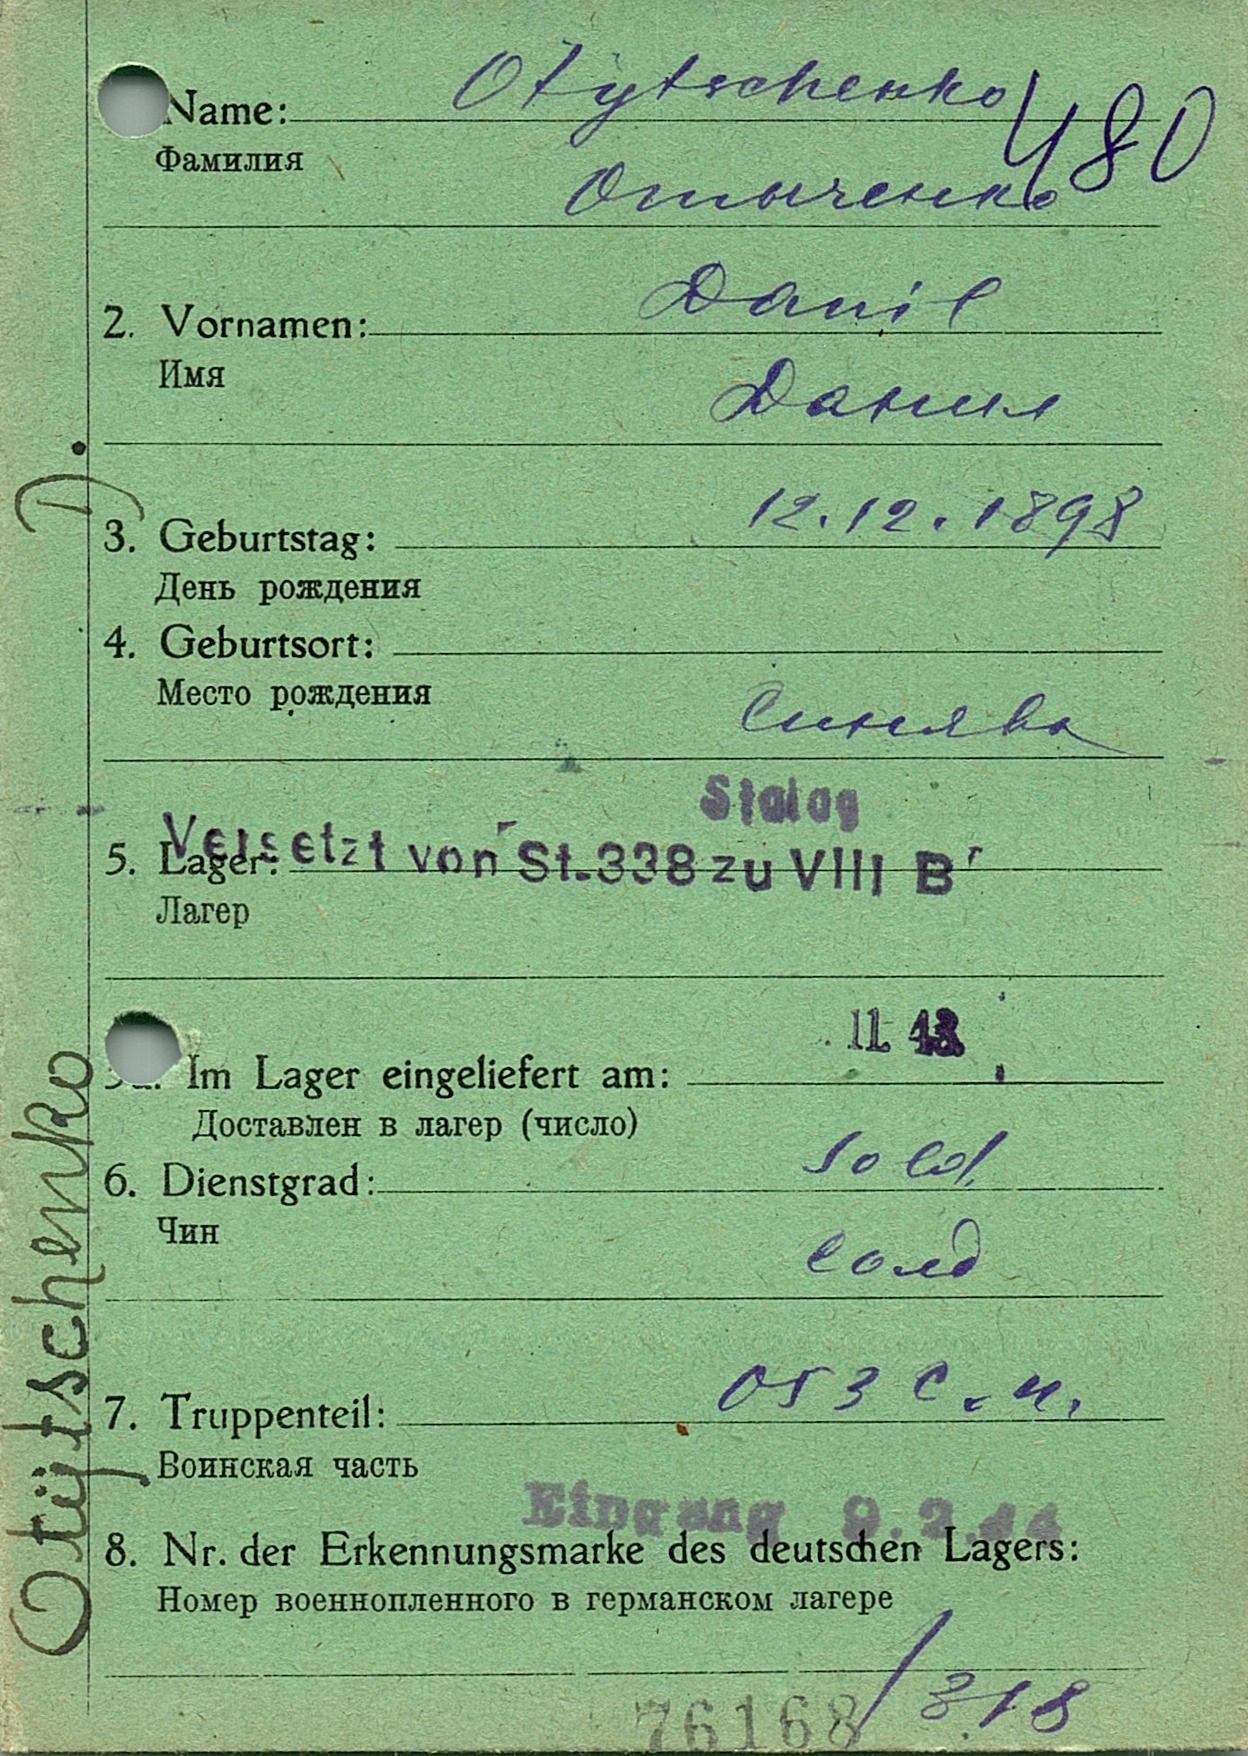 Name: Otÿtschenko
480
Фамилия
Отыченко
2. Vornamen: Danil
Имя
Данил
D.
3. Geburtstag: 12.12.1898
День рождения
4. Geburtsort:
Место рождения
Синява
Stalag
Versetzt von St. 338 zu VIII B
5. Lager:
Лагер
11. 43.
Im Lager eingeliefert am:
Доставлен в лагер (число)
6. Dienstgrad: sold.
Чин
солд
Otÿtschenko
7. Truppenteil: 053 с.п.
Воинская часть
Eingang 9.2.44
8. Nr. der Erkennungsmarke des deutschen Lagers:
Номер военнопленного в германском лагере
76168 / 318